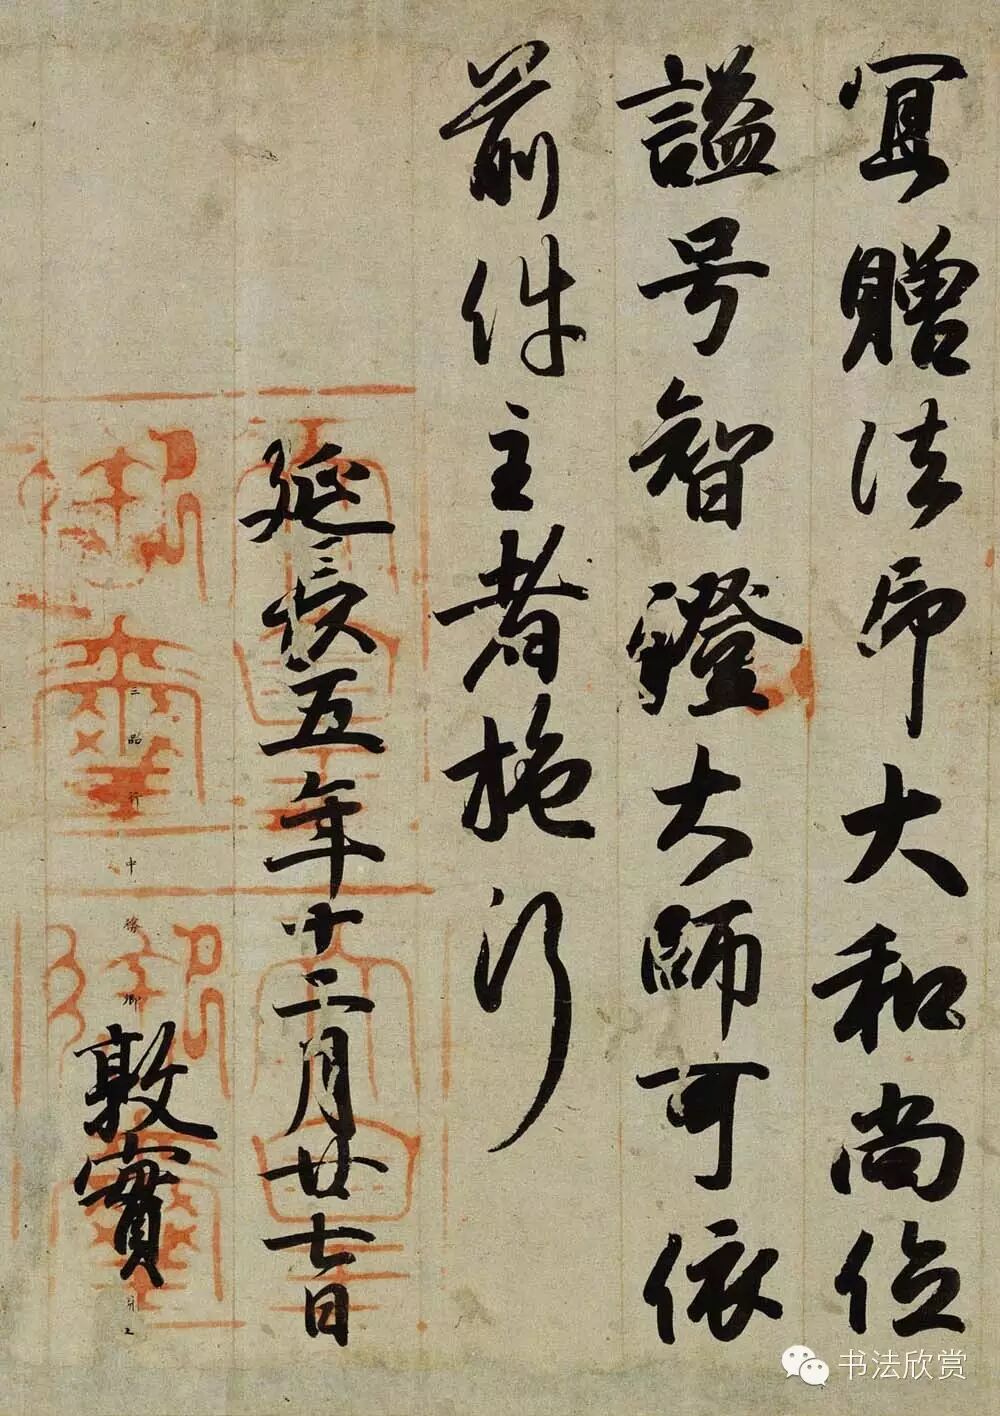 宜贈法印大和尚位
謚号智證大師可依
前件主者施行
延長五年十二月廿七日
三品行中務卿敦實
書法欣赏